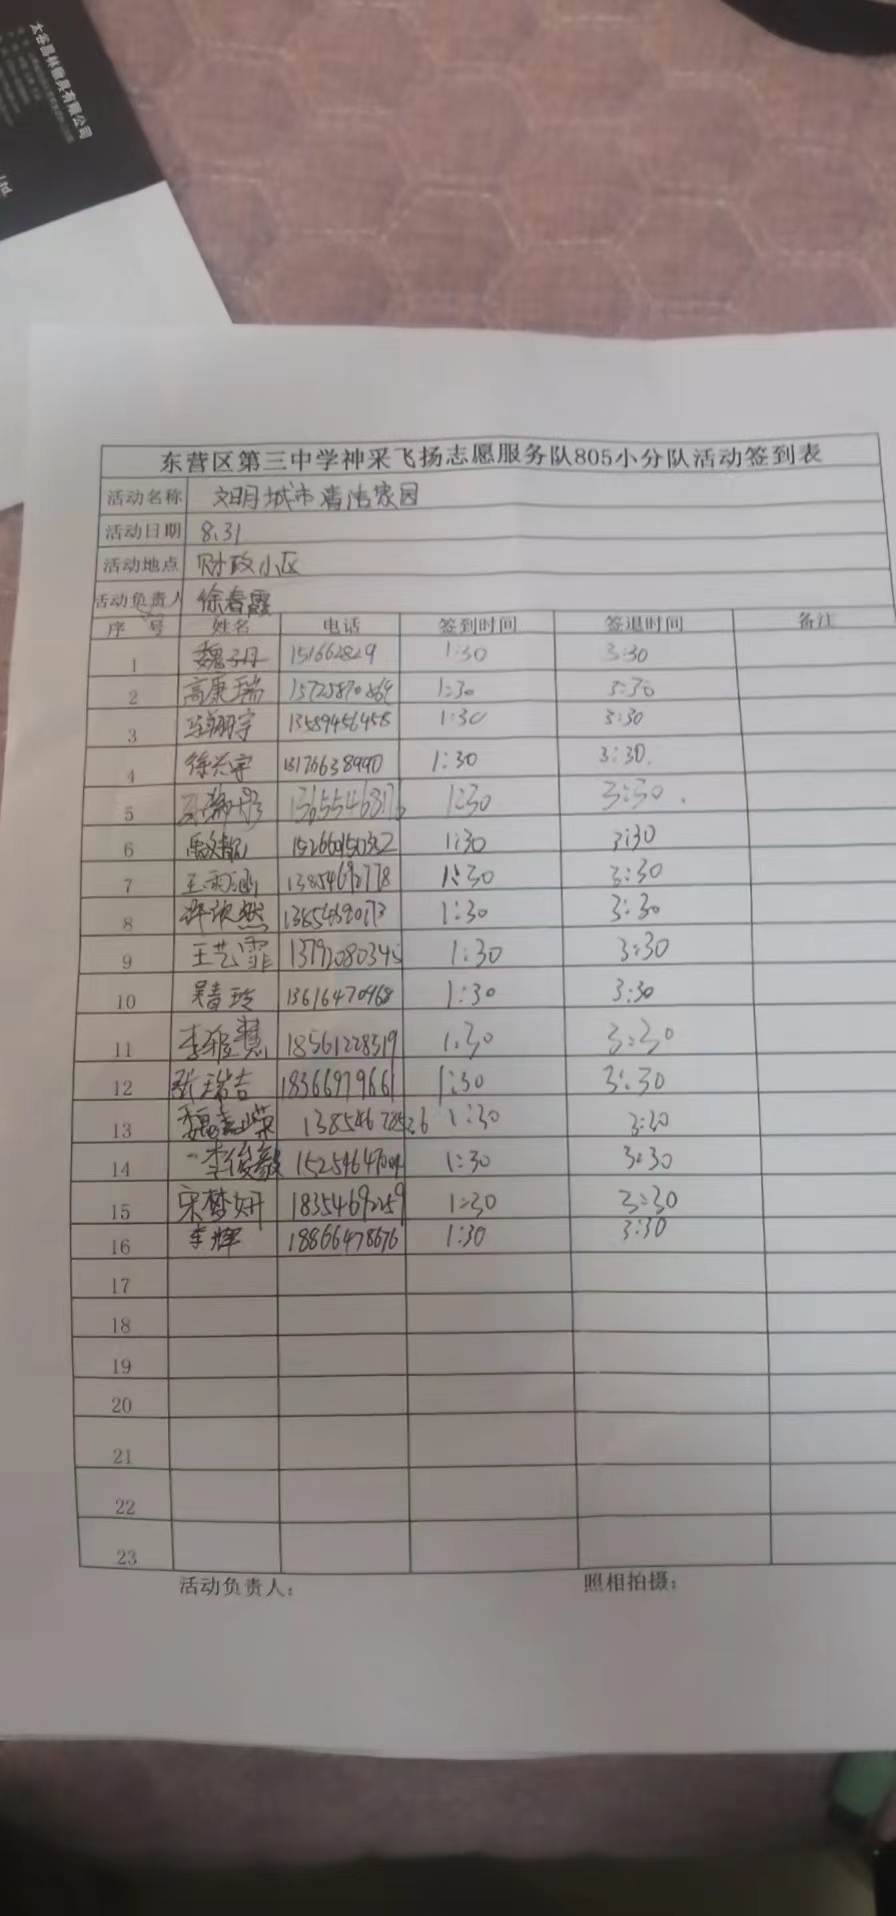 太谷晶林餐具有限公司
东营区第三中学神采飞扬志愿服务队805小分队活动签到表
活动名称 文明城市 清洁家园
活动日期 8.31
活动地点 财政小区
活动负责人 徐春霞
序 号 姓名 电话 签到时间 签退时间 备注
1 魏子丹 151662829 1:30 3:30
2 高康瑞 15725870864 1:30 3:30
3 13589456458 1:30 3:30
4 徐兴宇 13176638990 1:30 3:30
5 1:30 3:30
6 1:30 3:30
7 王雨涵 13854692778 1:30 3:30
8 许欣然 1:30 3:30
9 王艺霏 1:30 3:30
10 吴青玲 13616470968 1:30 3:30
11 李雅慧 18561228519 1:30 3:30
12 张瑞吉 18366979661 1:30 3:30
13 魏嘉嵘 1:30 3:30
14 李俊毅 1:30 3:30
15 宋梦妍 18354692259 1:30 3:30
16 李辉 18866478676 1:30 3:30
17
18
19
20
21
22
23
活动负责人： 照相拍摄：